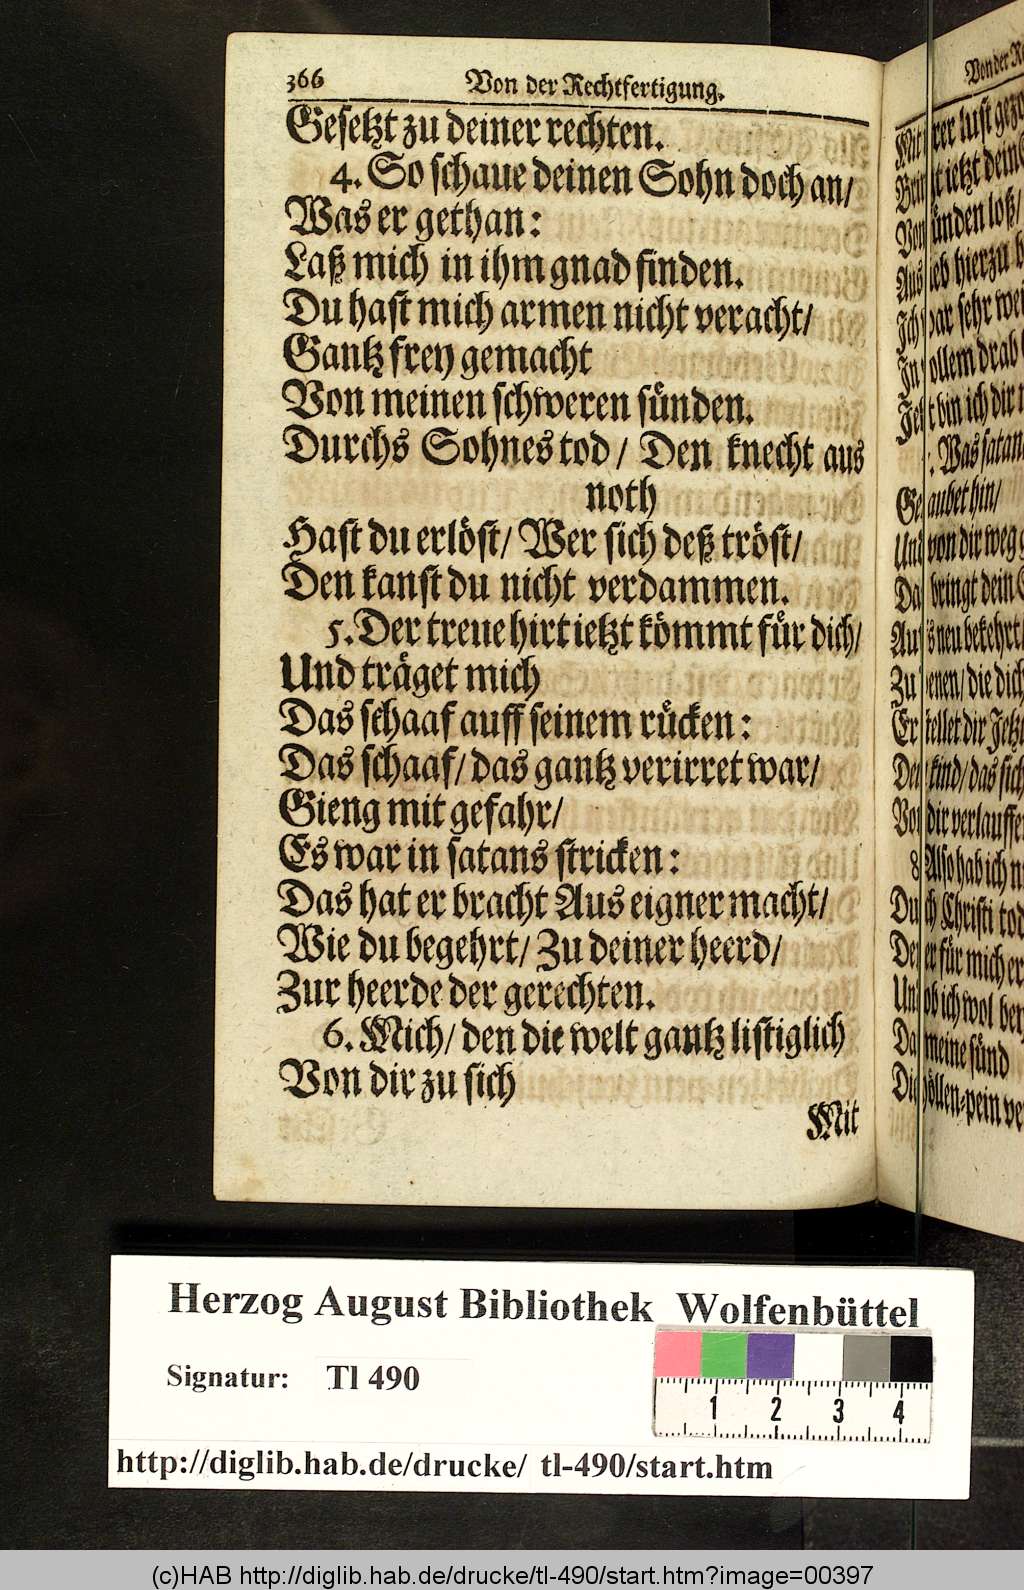 366 Von der Rechtfertigung.
Gesetzt zu deiner rechten.
4. So schaue deinen Sohn doch an/
Was er gethan:
Laß mich in ihm gnad finden.
Du hast mich armen nicht veracht/
Gantz frey gemacht
Von meinen schweren sünden.
Durchs Sohnes tod / Den knecht aus
noth
Hast du erlöst/ Wer sich deß tröst/
Den kanst du nicht verdammen.
5. Der treue hirt ietzt kömmt für dich/
Und träget mich
Das schaaf auff seinem rücken:
Das schaaf/ das gantz verirret war/
Gieng mit gefahr/
Es war in satans stricken:
Das hat er bracht Aus eigner macht/
Wie du begehrt/ Zu deiner heerd/
Zur heerde der gerechten.
6. Mich/ den die welt gantz listiglich
Von dir zu sich
Mit
Von der
lust
ietzt
ünden loß/
hierzu
sehr
ollem drab
bin ich dir
Was satan
aubet hin/
Und von dir weg
bringt dein
neu bekehrt/
enen/ die dich
Er stellet dir Jetzt
kind/ das sich
Von dir verlauffen
8. Also hab ich
Durch Christi tod
Der er für mich
Und ob ich wol
Daß meine sünd
Die höllen-pein
Herzog August Bibliothek Wolfenbüttel
Signatur: Tl 490
1 2 3 4
http://diglib.hab.de/drucke/ tl-490/start.htm
(c)HAB http://diglib.hab.de/drucke/tl-490/start.htm?image=00397